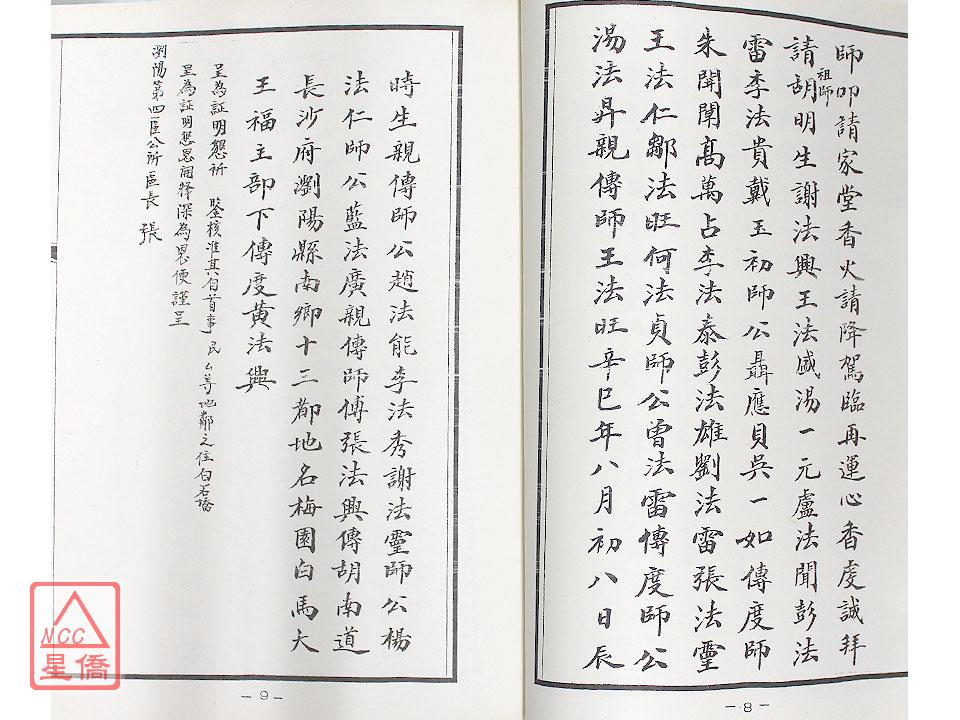 師叩請家堂香火請降駕臨再運心香虔誠拜
請祖師胡明生謝法興王法盛湯一元盧法聞彭法
雷李法貴戴玉初師公聶應貝吳一如傳度師
朱開闡高萬占李法泰彭法雄劉法雷張法靈
王法仁鄒法旺何法貞師公曾法雷傳度師公
湯法昇親傳師王法旺辛巳年八月初八日辰
-8-
時生親傳師公趙法能李法秀謝法靈師公楊
法仁師公藍法廣親傳師傅張法興傳胡南道
長沙府瀏陽縣南鄉十三都地名梅園白馬大
王福主部下傳度黃法興
呈為証明懇祈 鑒核准其自首事民厶等地鄰之住白石橋
呈為証明懇恩開釋深為恩便謹呈
瀏陽第四區公所區長 張
-9-
NCC
星僑